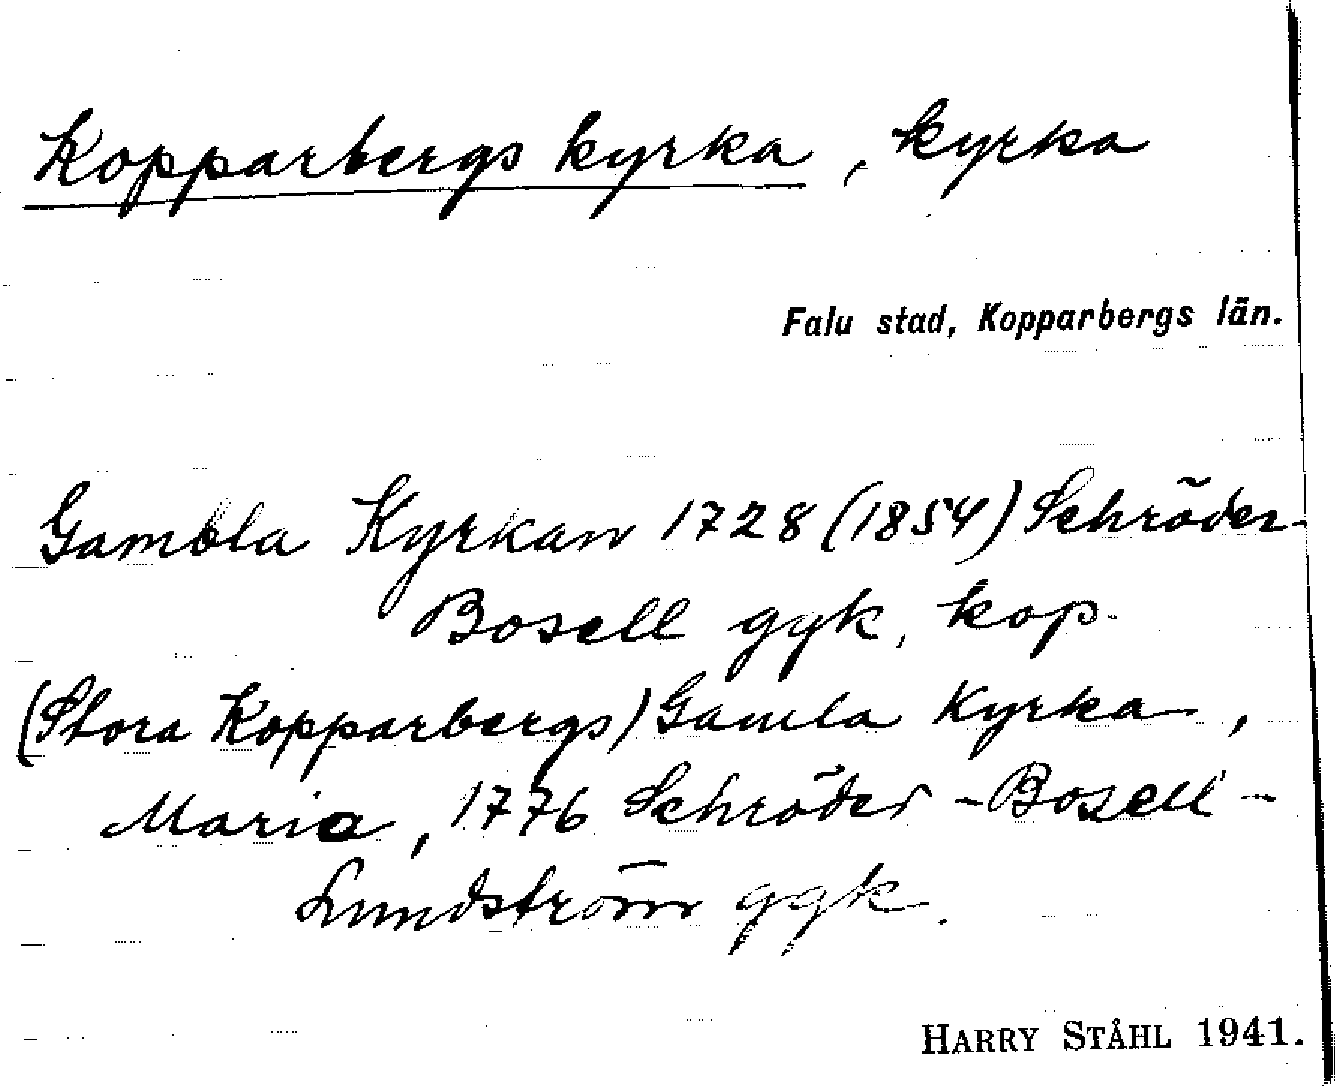 Kopparbergs kyrka, kyrka
Falu stad, Kopparbergs län.
Gambla Kyrkan 1728 (1854) Schröder-
Bosell gyk, kop.
(Stora Kopparbergs) Gamla Kyrka,
Maria, 1776 Schröder-Bosell-
Lundström ggk.
HARRY STÅHL 1941.